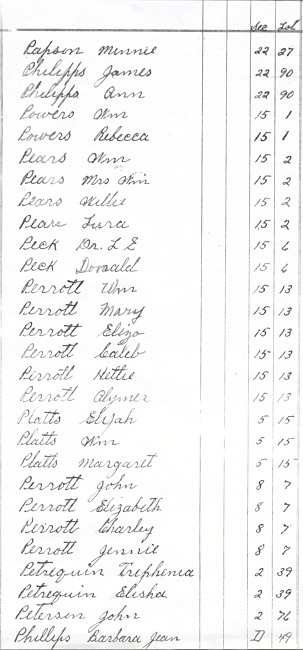 Sec Lot
Papson Minnie 22 27
Philipps James 22 90
Philipps Ann 22 90
Powers Wm 15 1
Powers Rebecca 15 1
Pears Wm 15 2
Pears Mrs Wm 15 2
Pears Willie 15 2
Pears Lura 15 2
Peck Dr. L E 15 6
Peck Donald 15 6
Perrott Wm 15 13
Perrott Mary 15 13
Perrott Eliza 15 13
Perrott Caleb 15 13
Perrott Hettie 15 13
Perrott Clymer 15 13
Platts Elijah 5 15
Platts Wm 5 15
Platts Margaret 5 15
Perrott John 8 7
Perrott Elizabeth 8 7
Perrott Charley 8 7
Perrott Jennie 8 7
Petrequin Triphenia 2 39
Petrequin Elisha 2 39
Peterson John 2 76
Phillips Barbara Jean D 49